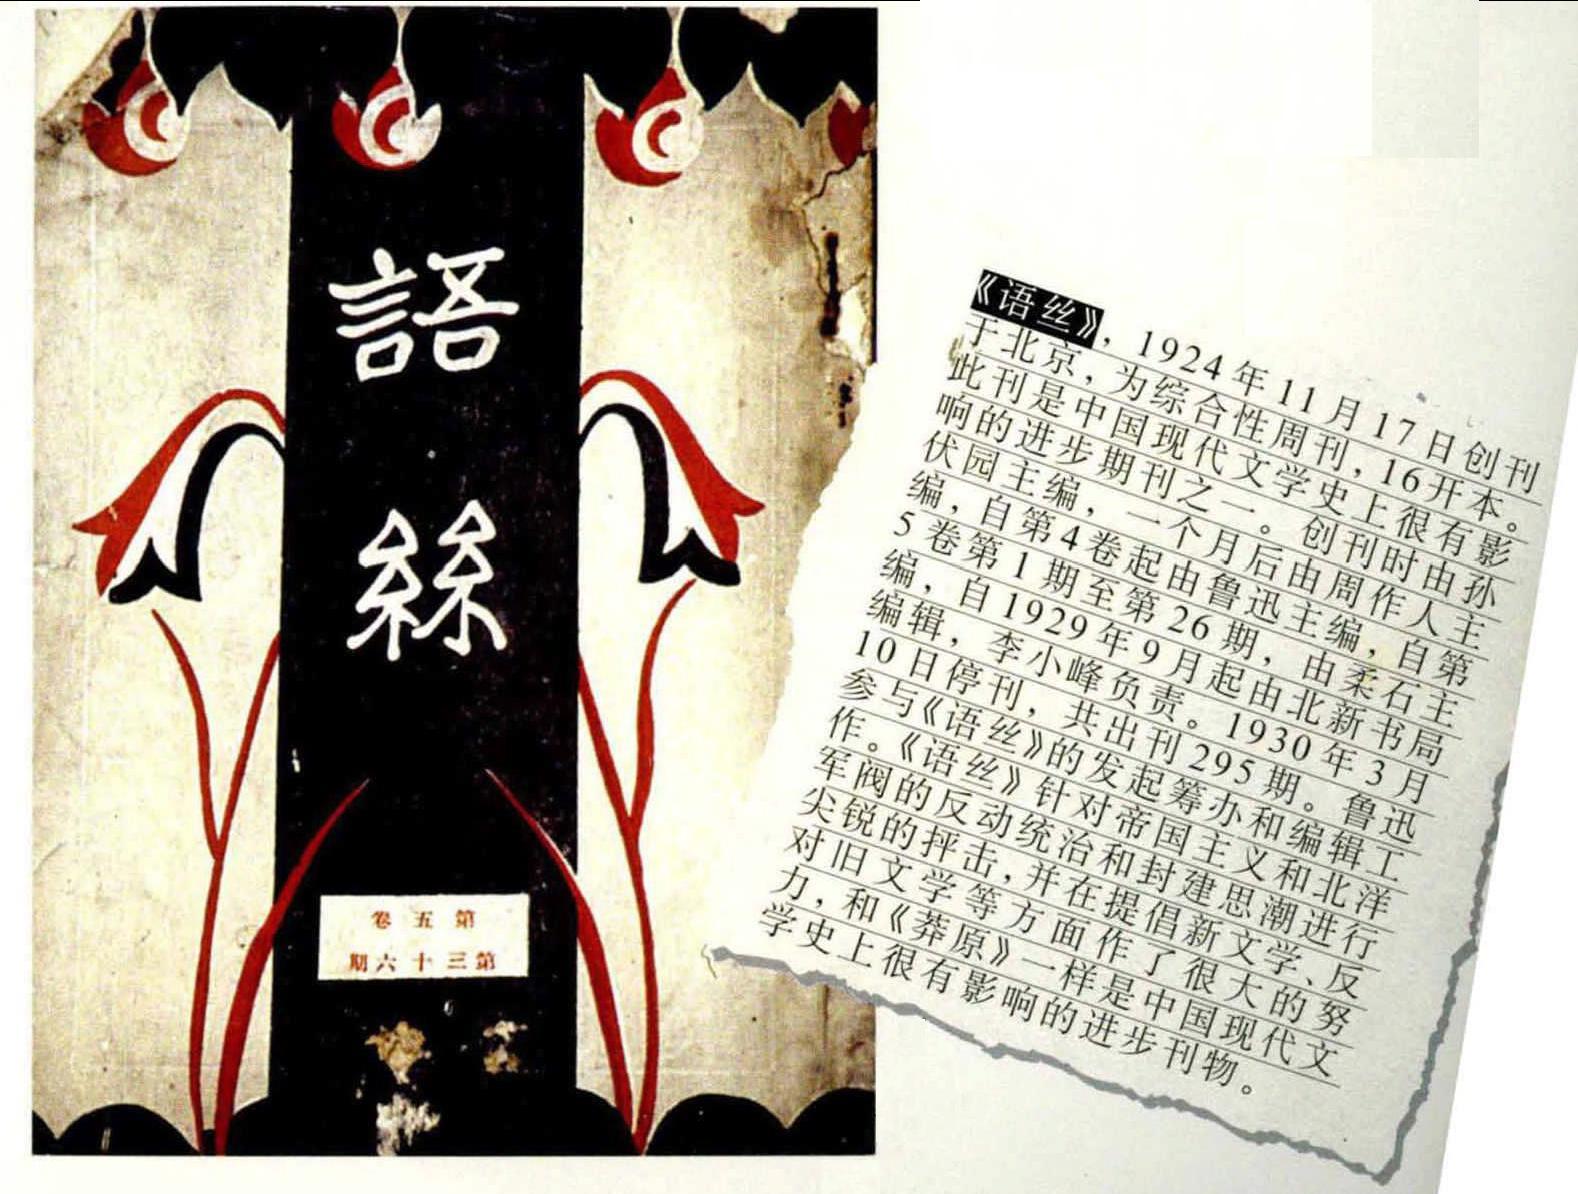 語
絲
卷五第
期六十三第
《语丝》，1924年11月17日创刊
于北京，为综合性周刊，16开本。
此刊是中国现代文学史上很有影
响的进步期刊之一。创刊时由孙
伏园主编，一个月后由周作人主
编，自第4卷起由鲁迅主编，自第
5卷第1期至第26期，由柔石主
编，自1929年9月起由北新书局
编辑，李小峰负责。1930年3月
10日停刊，共出刊295期。鲁迅
参与《语丝》的发起筹办和编辑工
作。《语丝》针对帝国主义和北洋
军阀的反动统治和封建思潮进行
尖锐的抨击，并在提倡新文学、反
对旧文学等方面作了很大的努
力，和《莽原》一样是中国现代文
学史上很有影响的进步刊物。